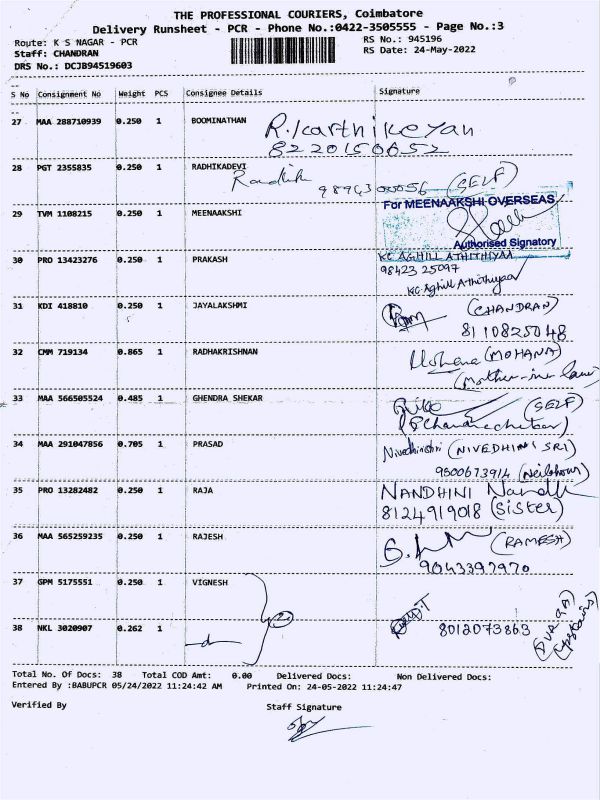 THE PROFESSIONAL COURIERS, Coimbatore
Delivery Runsheet - PCR - Phone No.:0422-3505555 - Page No.:3
Route: K S NAGAR - PCR
RS No.: 945196
Staff: CHANDRAN
RS Date: 24-May-2022
DRS No.: DCJB94519603
S No Consignment No Weight PCS Consignee Details Signature
27 MAA 288710939 0.250 1 BOOMINATHAN R. Karthikeyan
8220150652
28 PGT 2355835 0.250 1 RADHIKADEVI
Radhik (SELF)
For MEENAAKSHI OVERSEAS
29 TVM 1108215 0.250 1 MEENAAKSHI
Authorised Signatory
30 PRO 13423276 0.250 1 PRAKASH KC AGHILL ATHITHIYAA
98423 25097
KC Aghill Athithiyaa
31 KDI 418810 0.250 1 JAYALAKSHMI (CHANDRAN)
8110825048
32 CMM 719134 0.865 1 RADHAKRISHNAN Mohana (MOHANA)
(Mother-in-law)
33 MAA 566505524 0.485 1 GHENDRA SHEKAR (SELF)
34 MAA 291047856 0.705 1 PRASAD (NIVEDHINI SRI)
9500673914 (Neibhour)
35 PRO 13282482 0.250 1 RAJA NANDHINI Nandh
8124919018 (Sister)
36 MAA 565259235 0.250 1 RAJESH (RAMESH)
9043397970
37 GPM 5175551 0.250 1 VIGNESH
2
38 NKL 3020907 0.262 1 8012073863
(Upstairs)
Total No. Of Docs: 38 Total COD Amt: 0.00 Delivered Docs: Non Delivered Docs:
Entered By :BABUPCR 05/24/2022 11:24:42 AM Printed On: 24-05-2022 11:24:47
Verified By Staff Signature